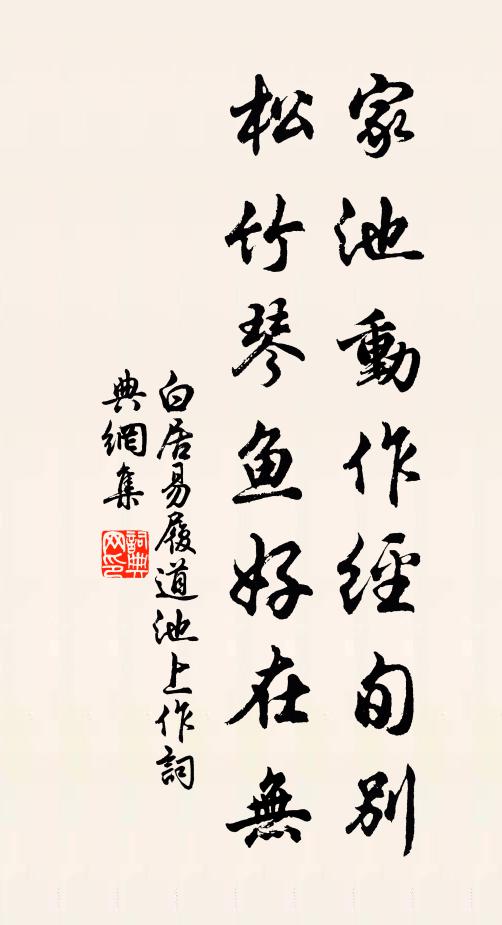 家池動作經旬別
松竹琴魚好在無
白居易履道池上作詞
典網集
詞典
网印